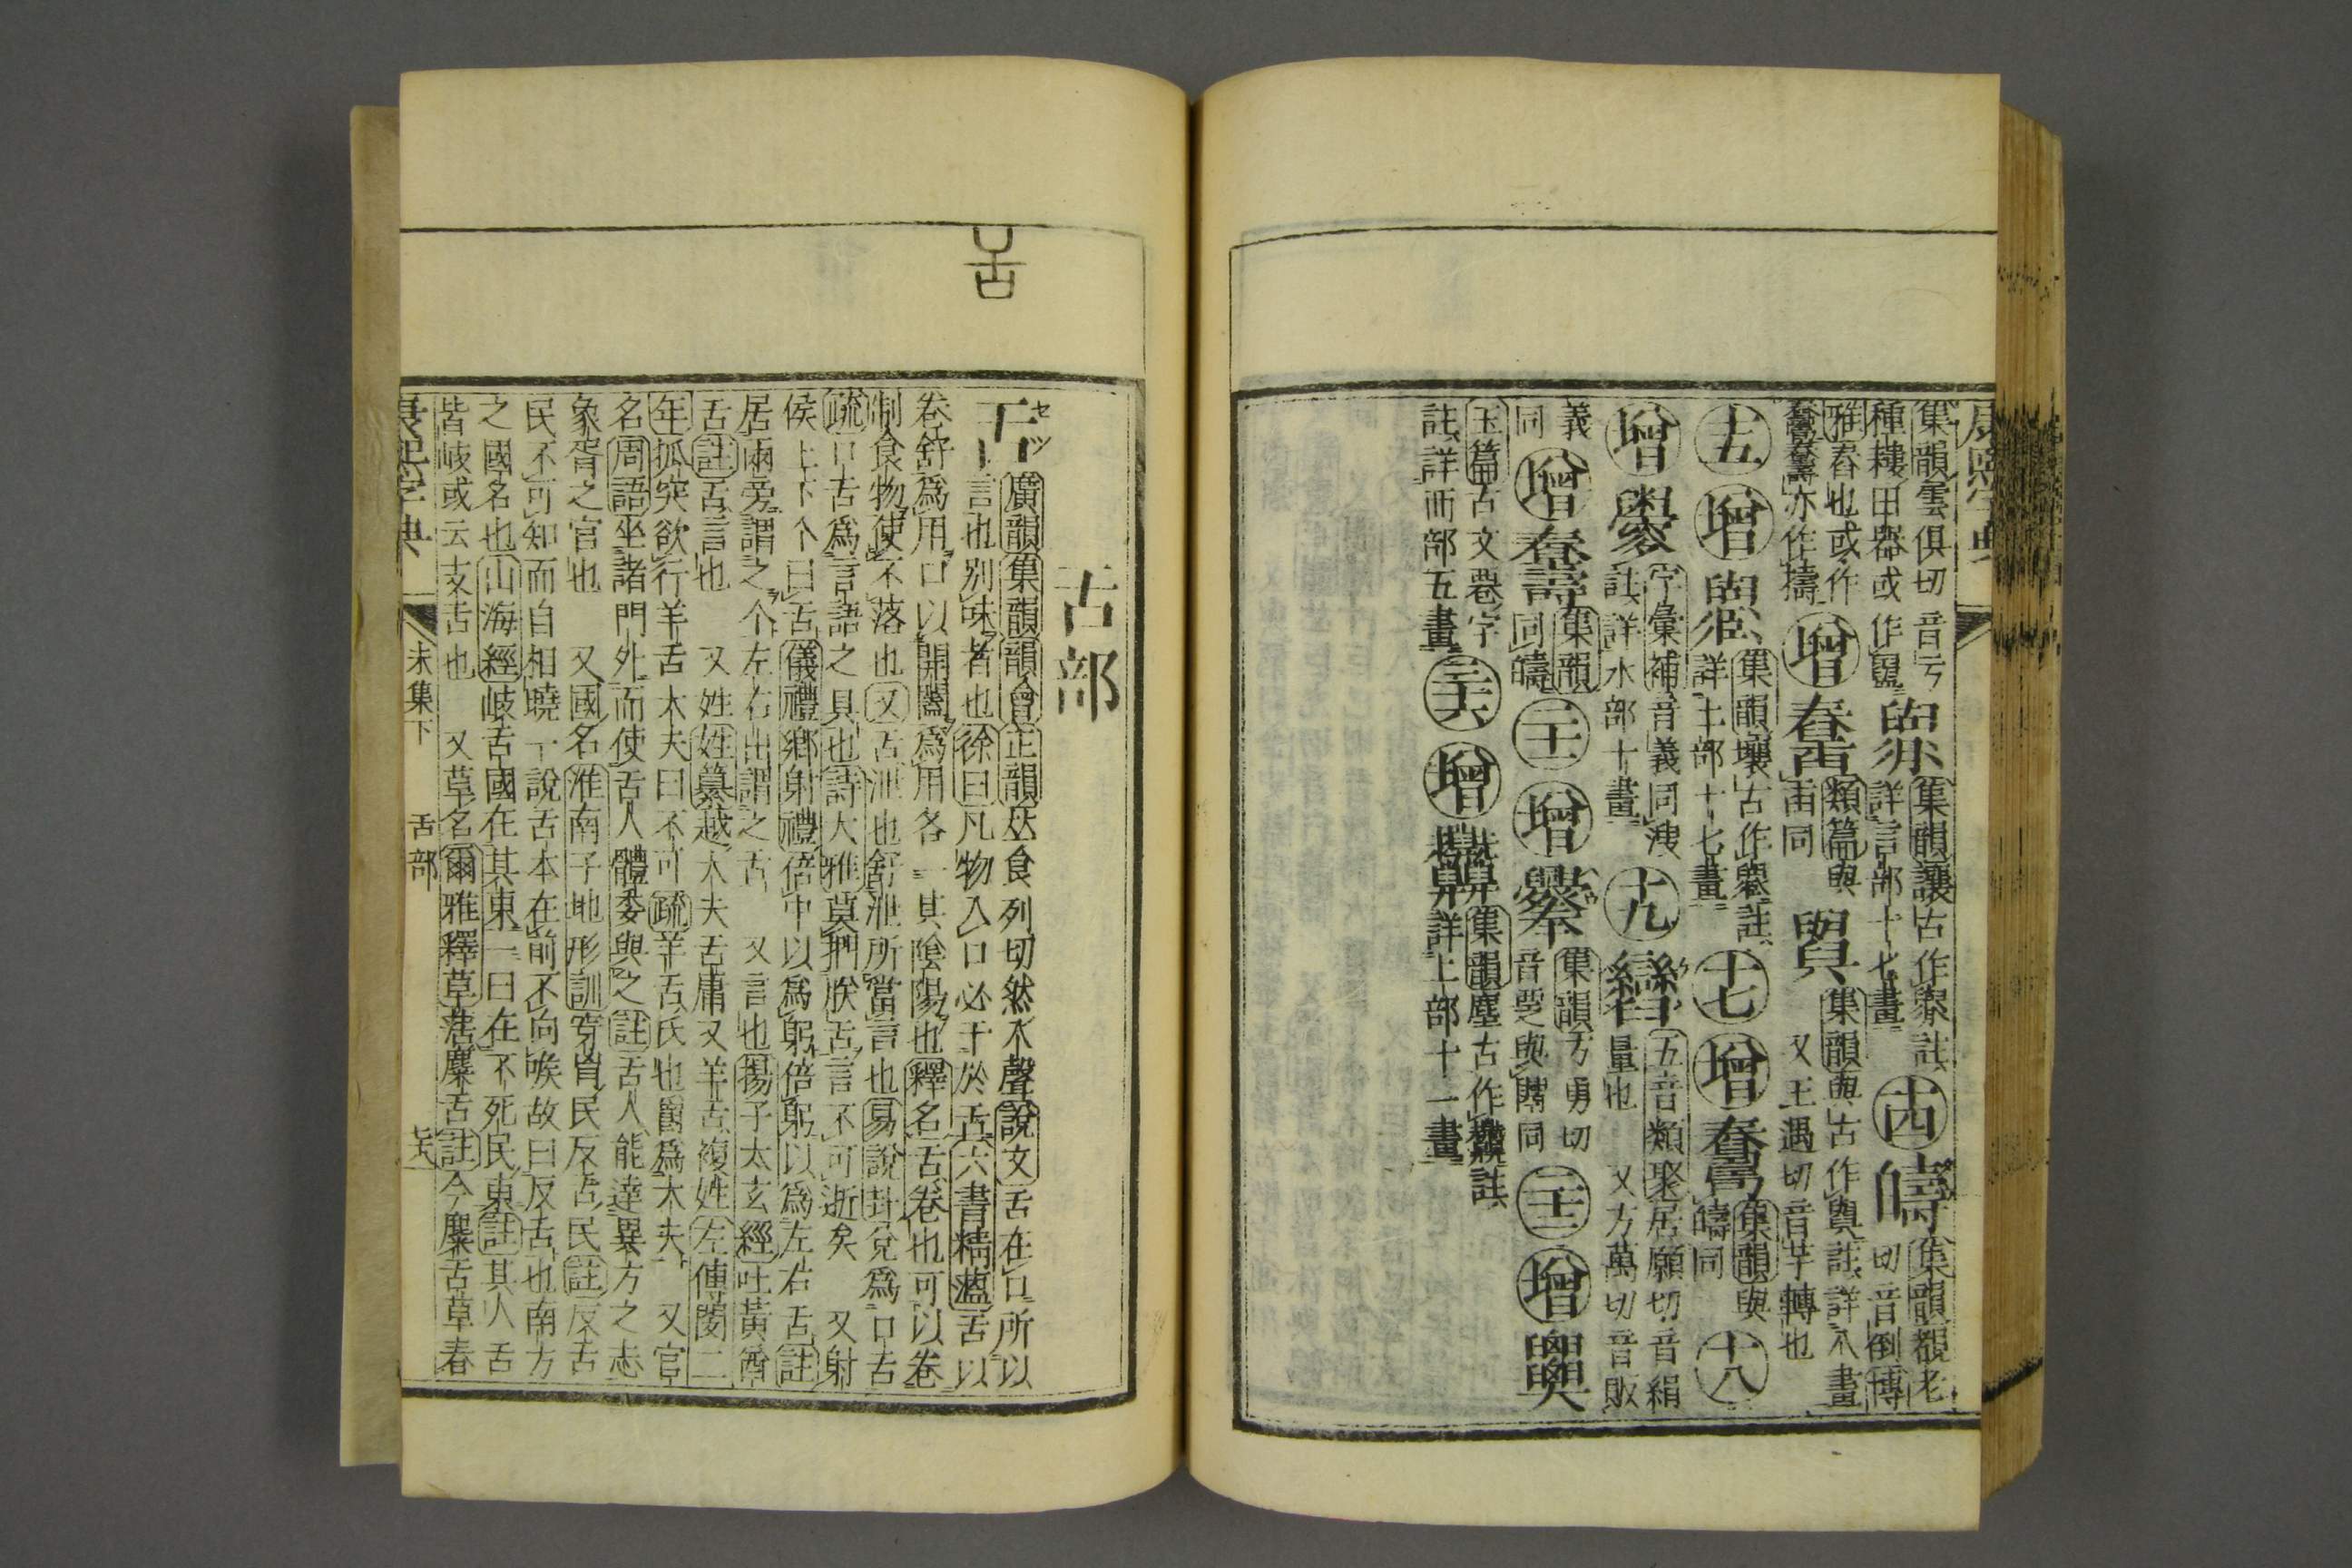 康熙字典
集韻雲俱切音亏
種耬田器或作
集韻讓古作
註
詳言部十七畫
十四
集韻覩老
切音倒博
雅舂也或作
亦作擣
增
類篇與
臿同
集韻與古作
註詳八畫
又王遇切音芋轉也
十五
增
集韻壤古作
註
詳土部十七畫
十七
增
集韻與
同
十八
增
字彙補音義同溲
註詳水部十畫
十九
五音類聚居願切音絹
量也 又方萬切音販
義
同
增
集韻
同
二十
增
集韻方勇切
音覂與
同
二十二
增
玉篇古文要字
註詳襾部五畫
二十六
增
集韻塵古作
註
詳土部十一畫
舌
舌部
舌
セツ
廣韻集韻韻會正韻𠀤食列切然入聲說文舌在口所以
言也別味者也徐曰凡物入口必干於舌六書精薀舌以
卷舒爲用口以開闔爲用各一其陰陽也釋名舌卷也可以卷
制食物使不落也又舌泄也舒泄所當言也易說卦兌爲口舌
疏口舌爲言語之具也詩大雅莫捫朕舌言不可逝矣 又射
侯上下个曰舌儀禮鄉射禮倍中以爲躬倍躬以爲左右舌註
居兩旁謂之个左右出謂之舌 又言也揚子太玄經吐黃酋
舌註舌言也 又姓姓纂越大夫舌庸又羊舌複姓左傳閔二
年狐突欲行羊舌大夫曰不可疏羊舌氏也爵爲大夫 又官
名周語坐諸門外而使舌人體委與之註舌人能達異方之志
象胥之官也 又國名淮南子地形訓穿胷民反舌民註反舌
民不可知而自相曉一說舌本在前不向喉故曰反舌也南方
之國名也山海經岐舌國在其東一曰在不死民東註其人舌
皆岐或云支舌也 又草名爾雅釋草菤麋舌註今麋舌草春
康熙字典
未集下
舌部